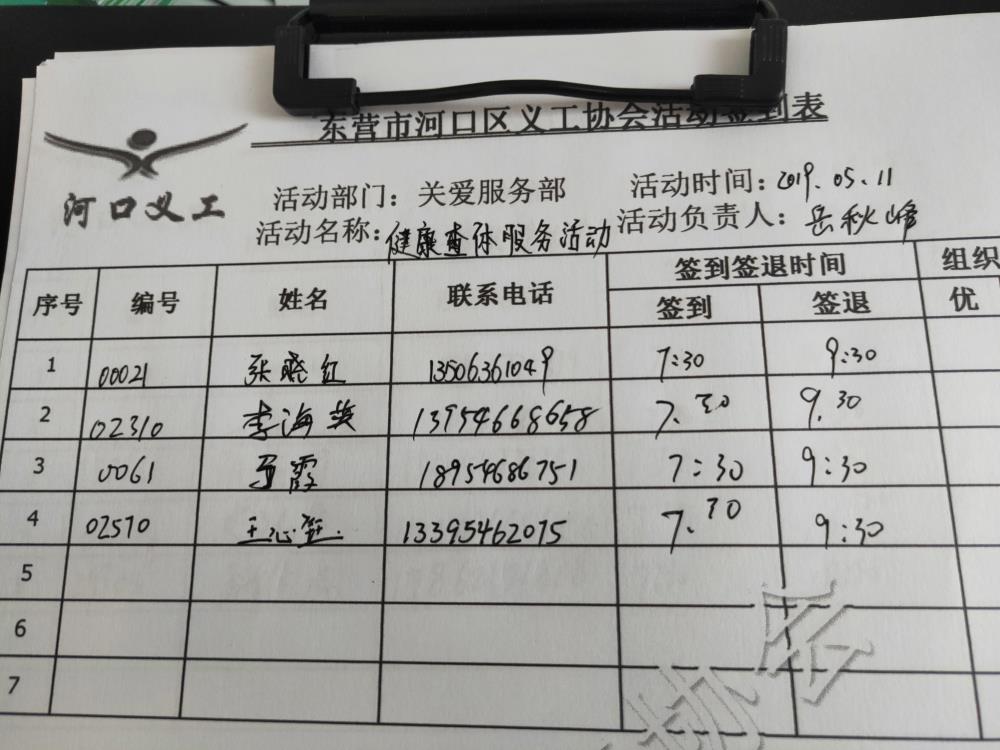 东营市河口区义工协会活动签到表
河口义工
活动部门：关爱服务部 活动时间：2019.05.11
活动名称：健康查体服务活动 活动负责人：岳秋峰
序号 编号 姓名 联系电话 签到签退时间 组织
签到 签退 优
1 00021 张晓红 13506361049 7:30 9:30
2 02310 李海英 13954668658 7.30 9.30
3 0061 马霞 18954686751 7:30 9:30
4 02570 王心 13395462075 7.30 9:30
5
6
7
协